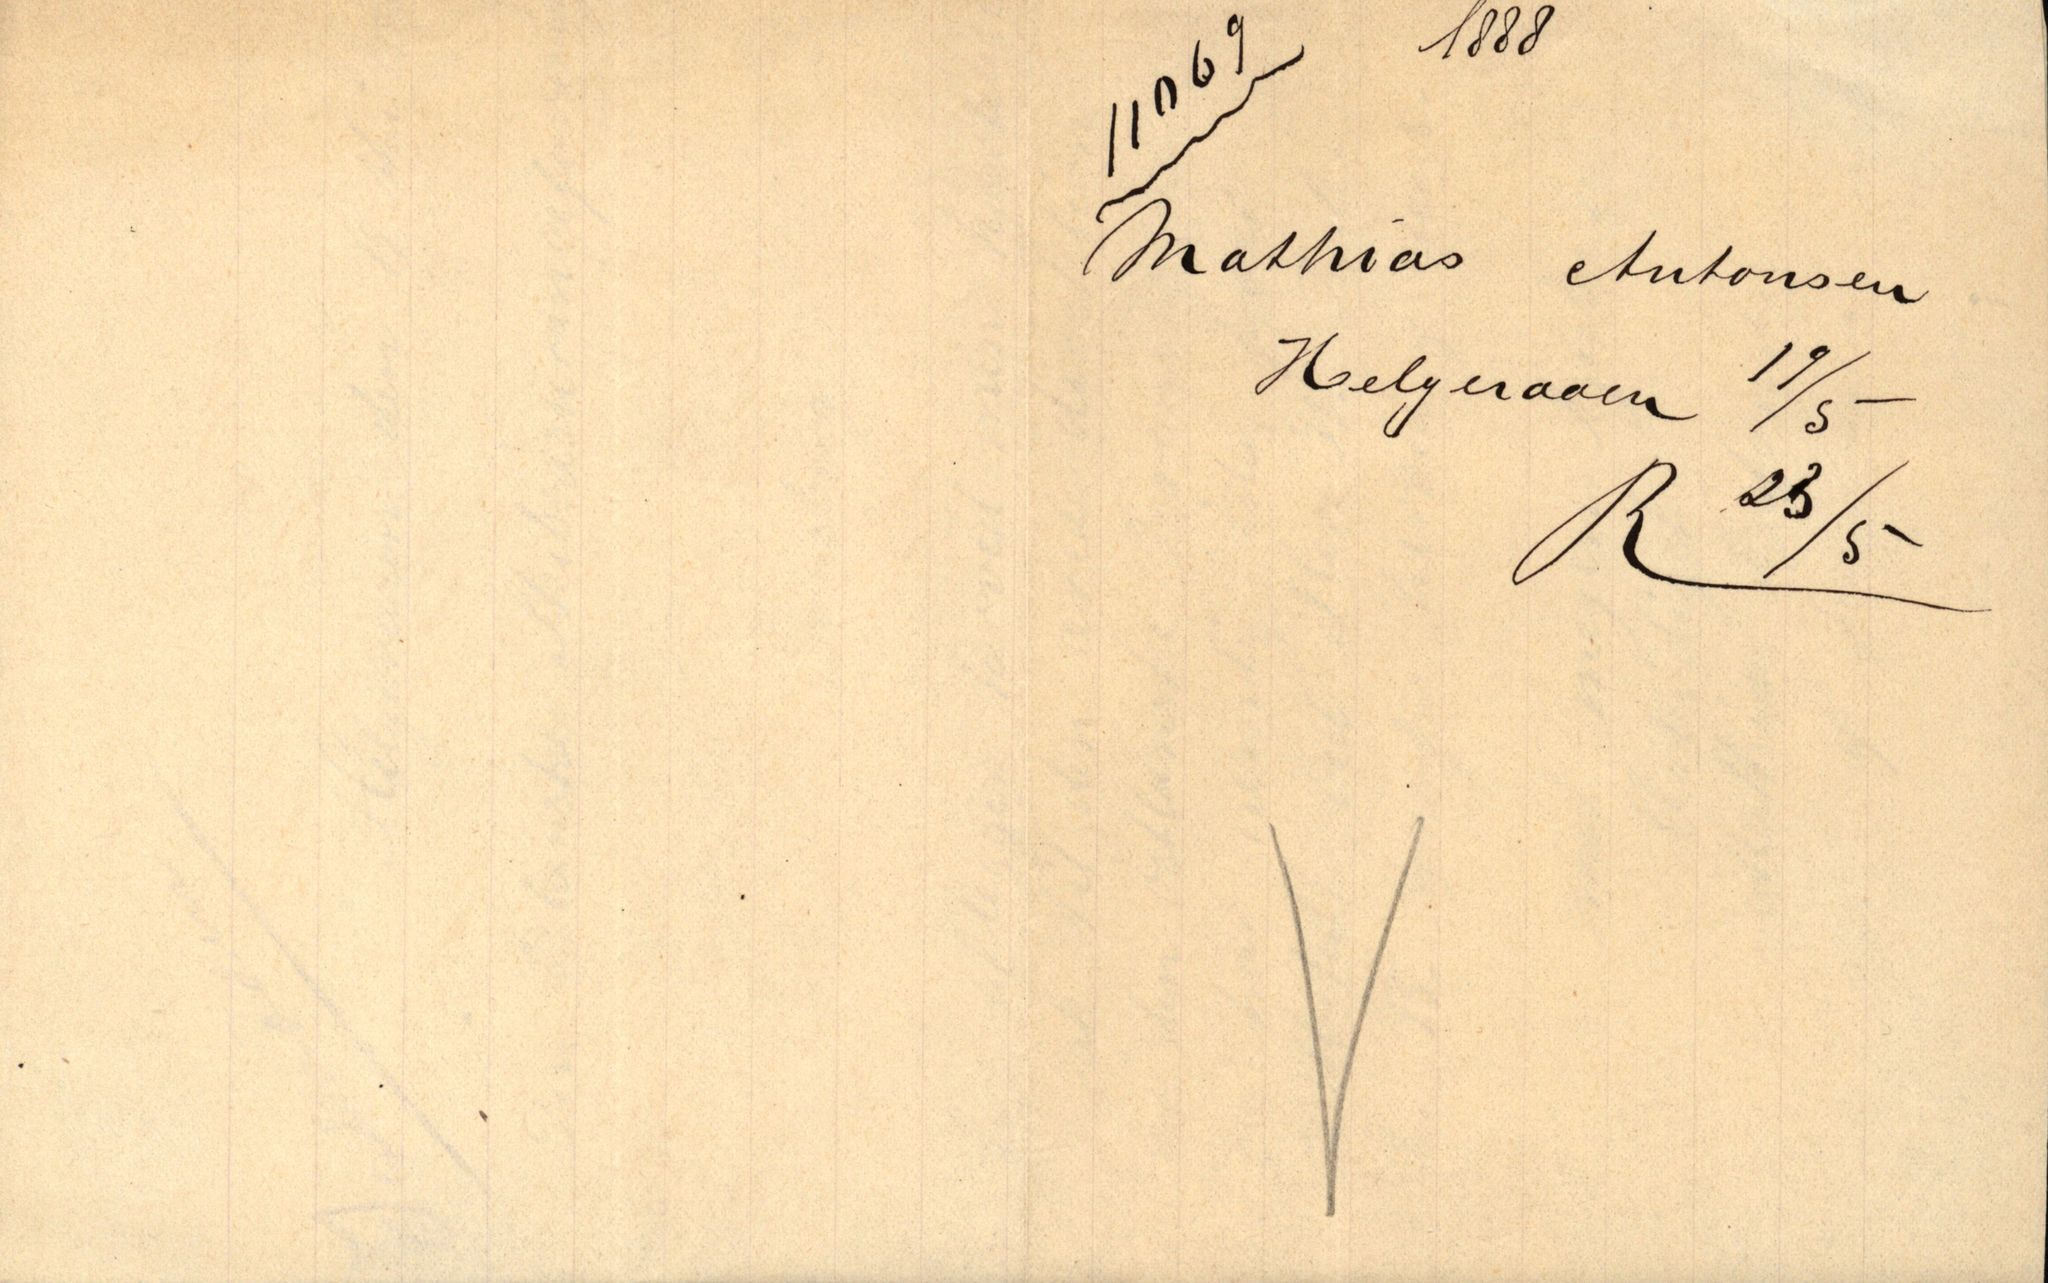 1888
11069
Mathias Antonsen
Helgeraaen 19/5
R 23/5